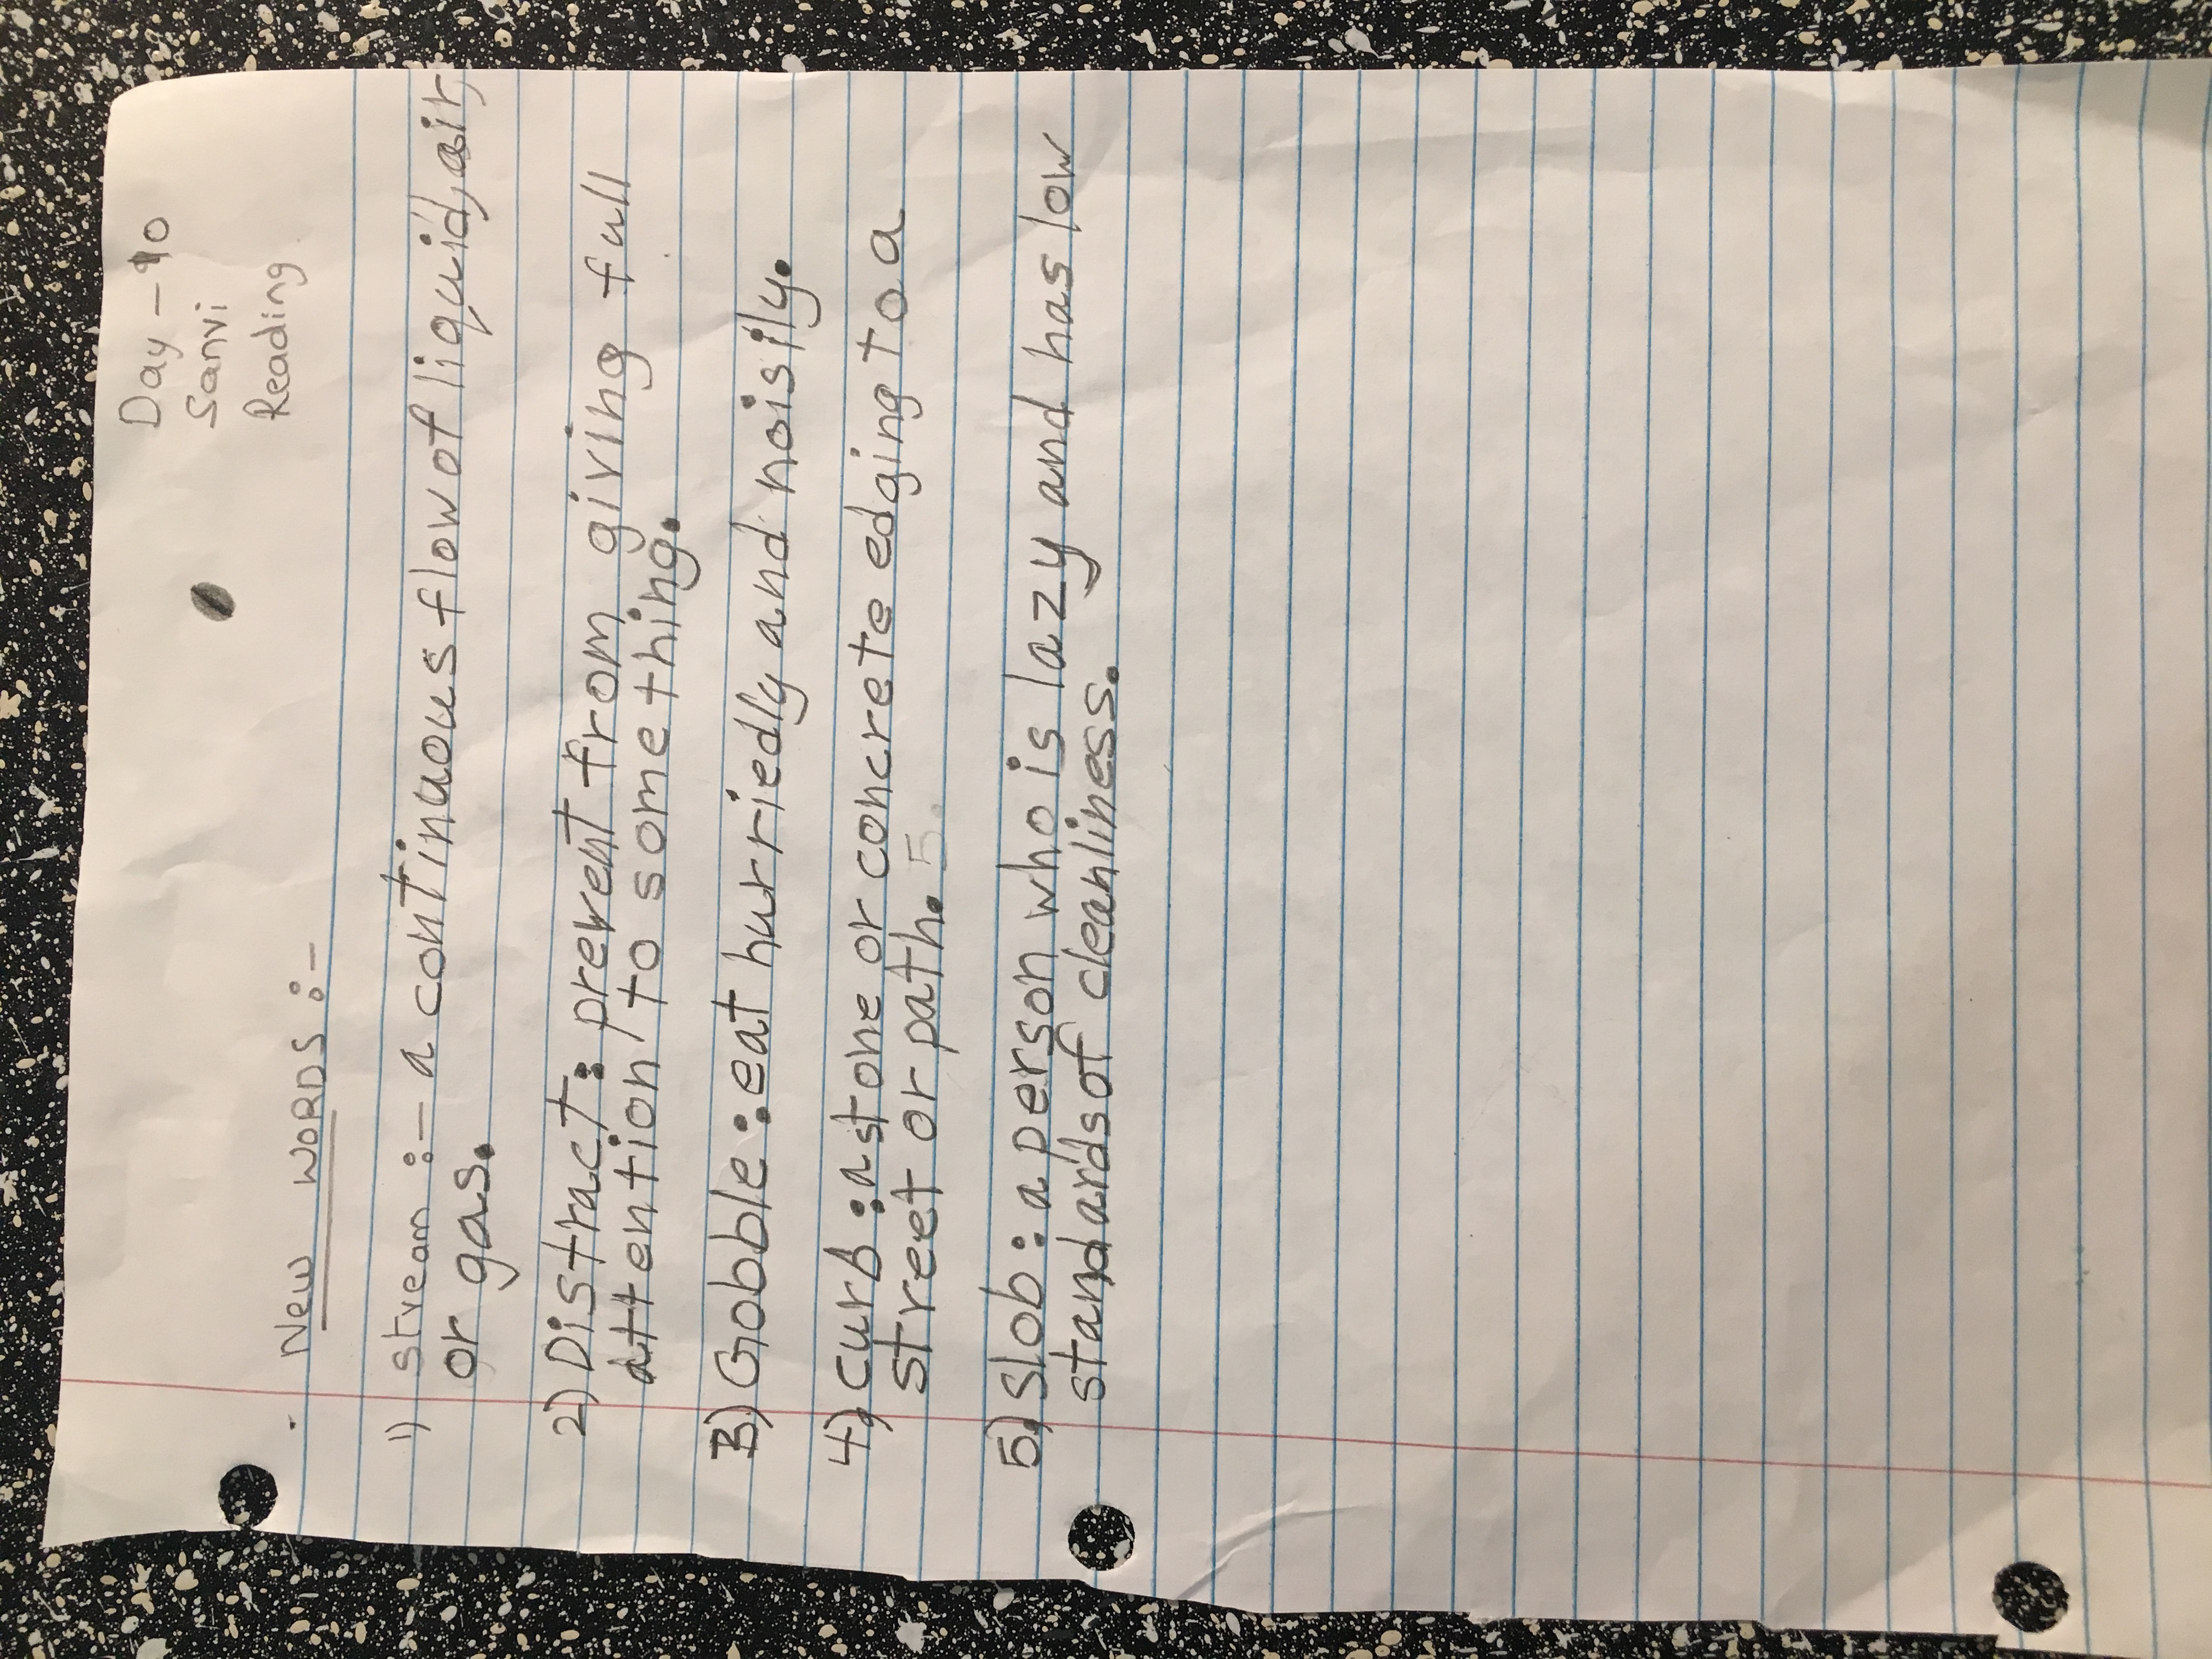 Day - 10
Sanvi
Reading
New WORDS :-
1) stream :- a continuous flow of liquid, air,
or gas.
2) Distract: prevent from giving full
attention to something.
3) Gobble : eat hurriedly and noisily.
4) curb : a stone or concrete edging to a
street or path. 5.
5) slob : a person who is lazy and has low
standards of cleanliness.